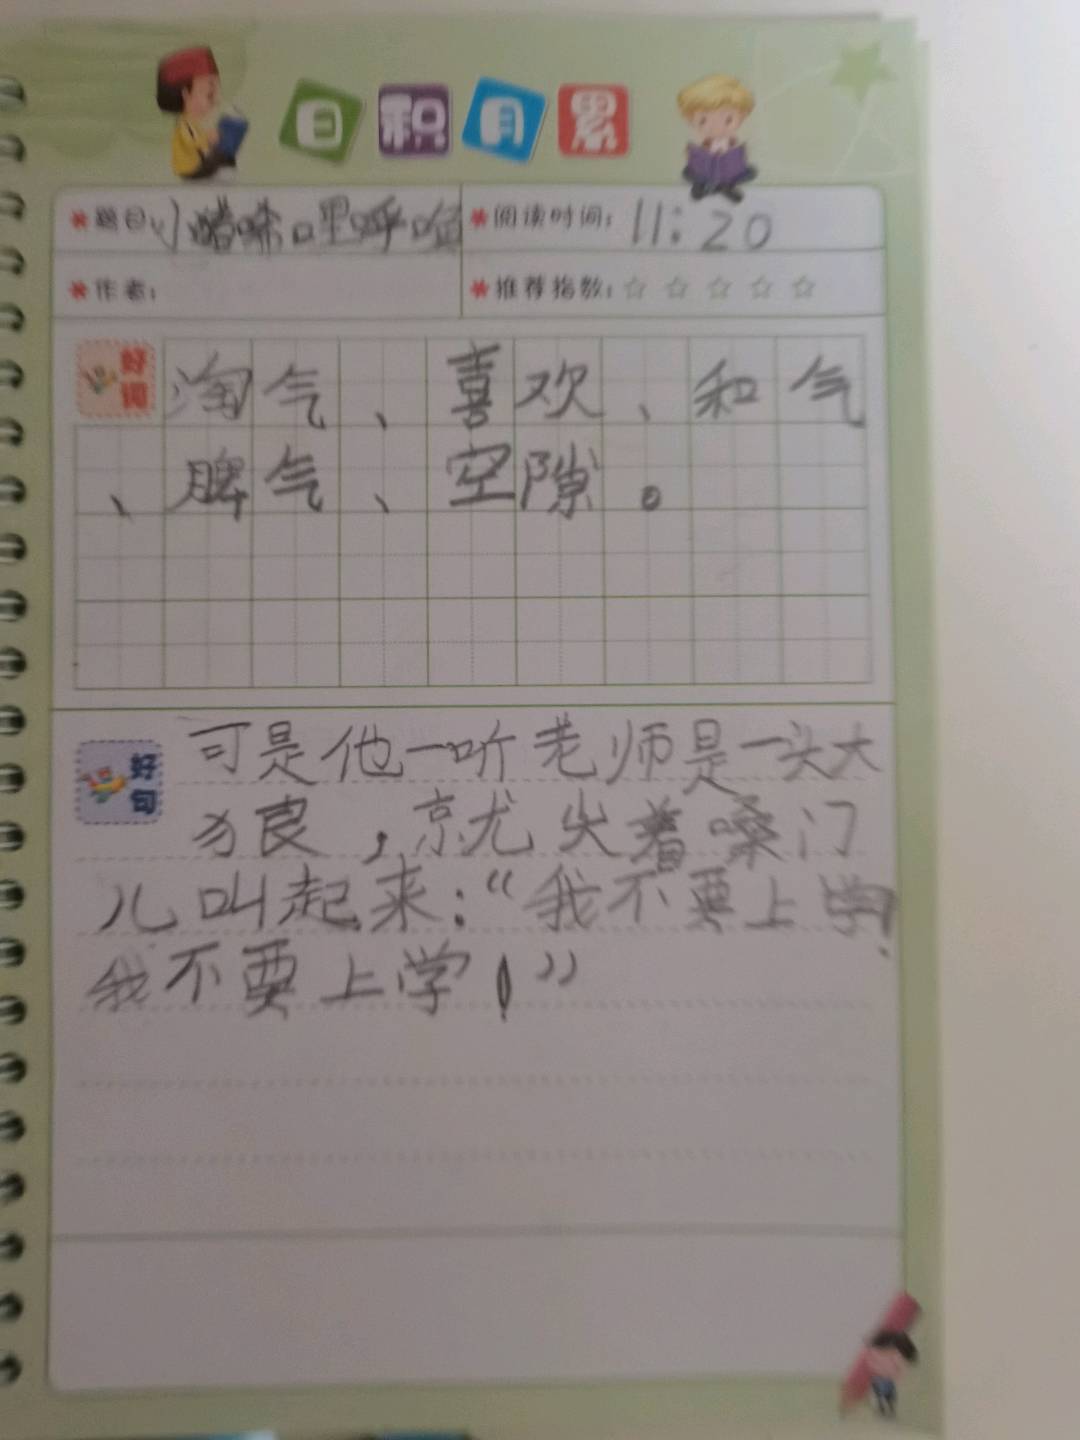 日积月累
题目:小猪唏哩呼噜 阅读时间:11:20
作者: 推荐指数:☆☆☆☆☆
好词 淘气、喜欢、和气
、脾气、空隙。
好句 可是他一听老师是一头大
狼,就尖着嗓门
儿叫起来:“我不要上学!
我不要上学!”